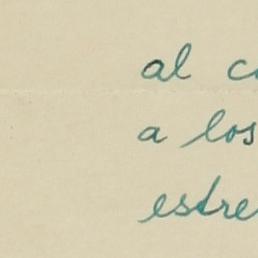 al c
a los
estre